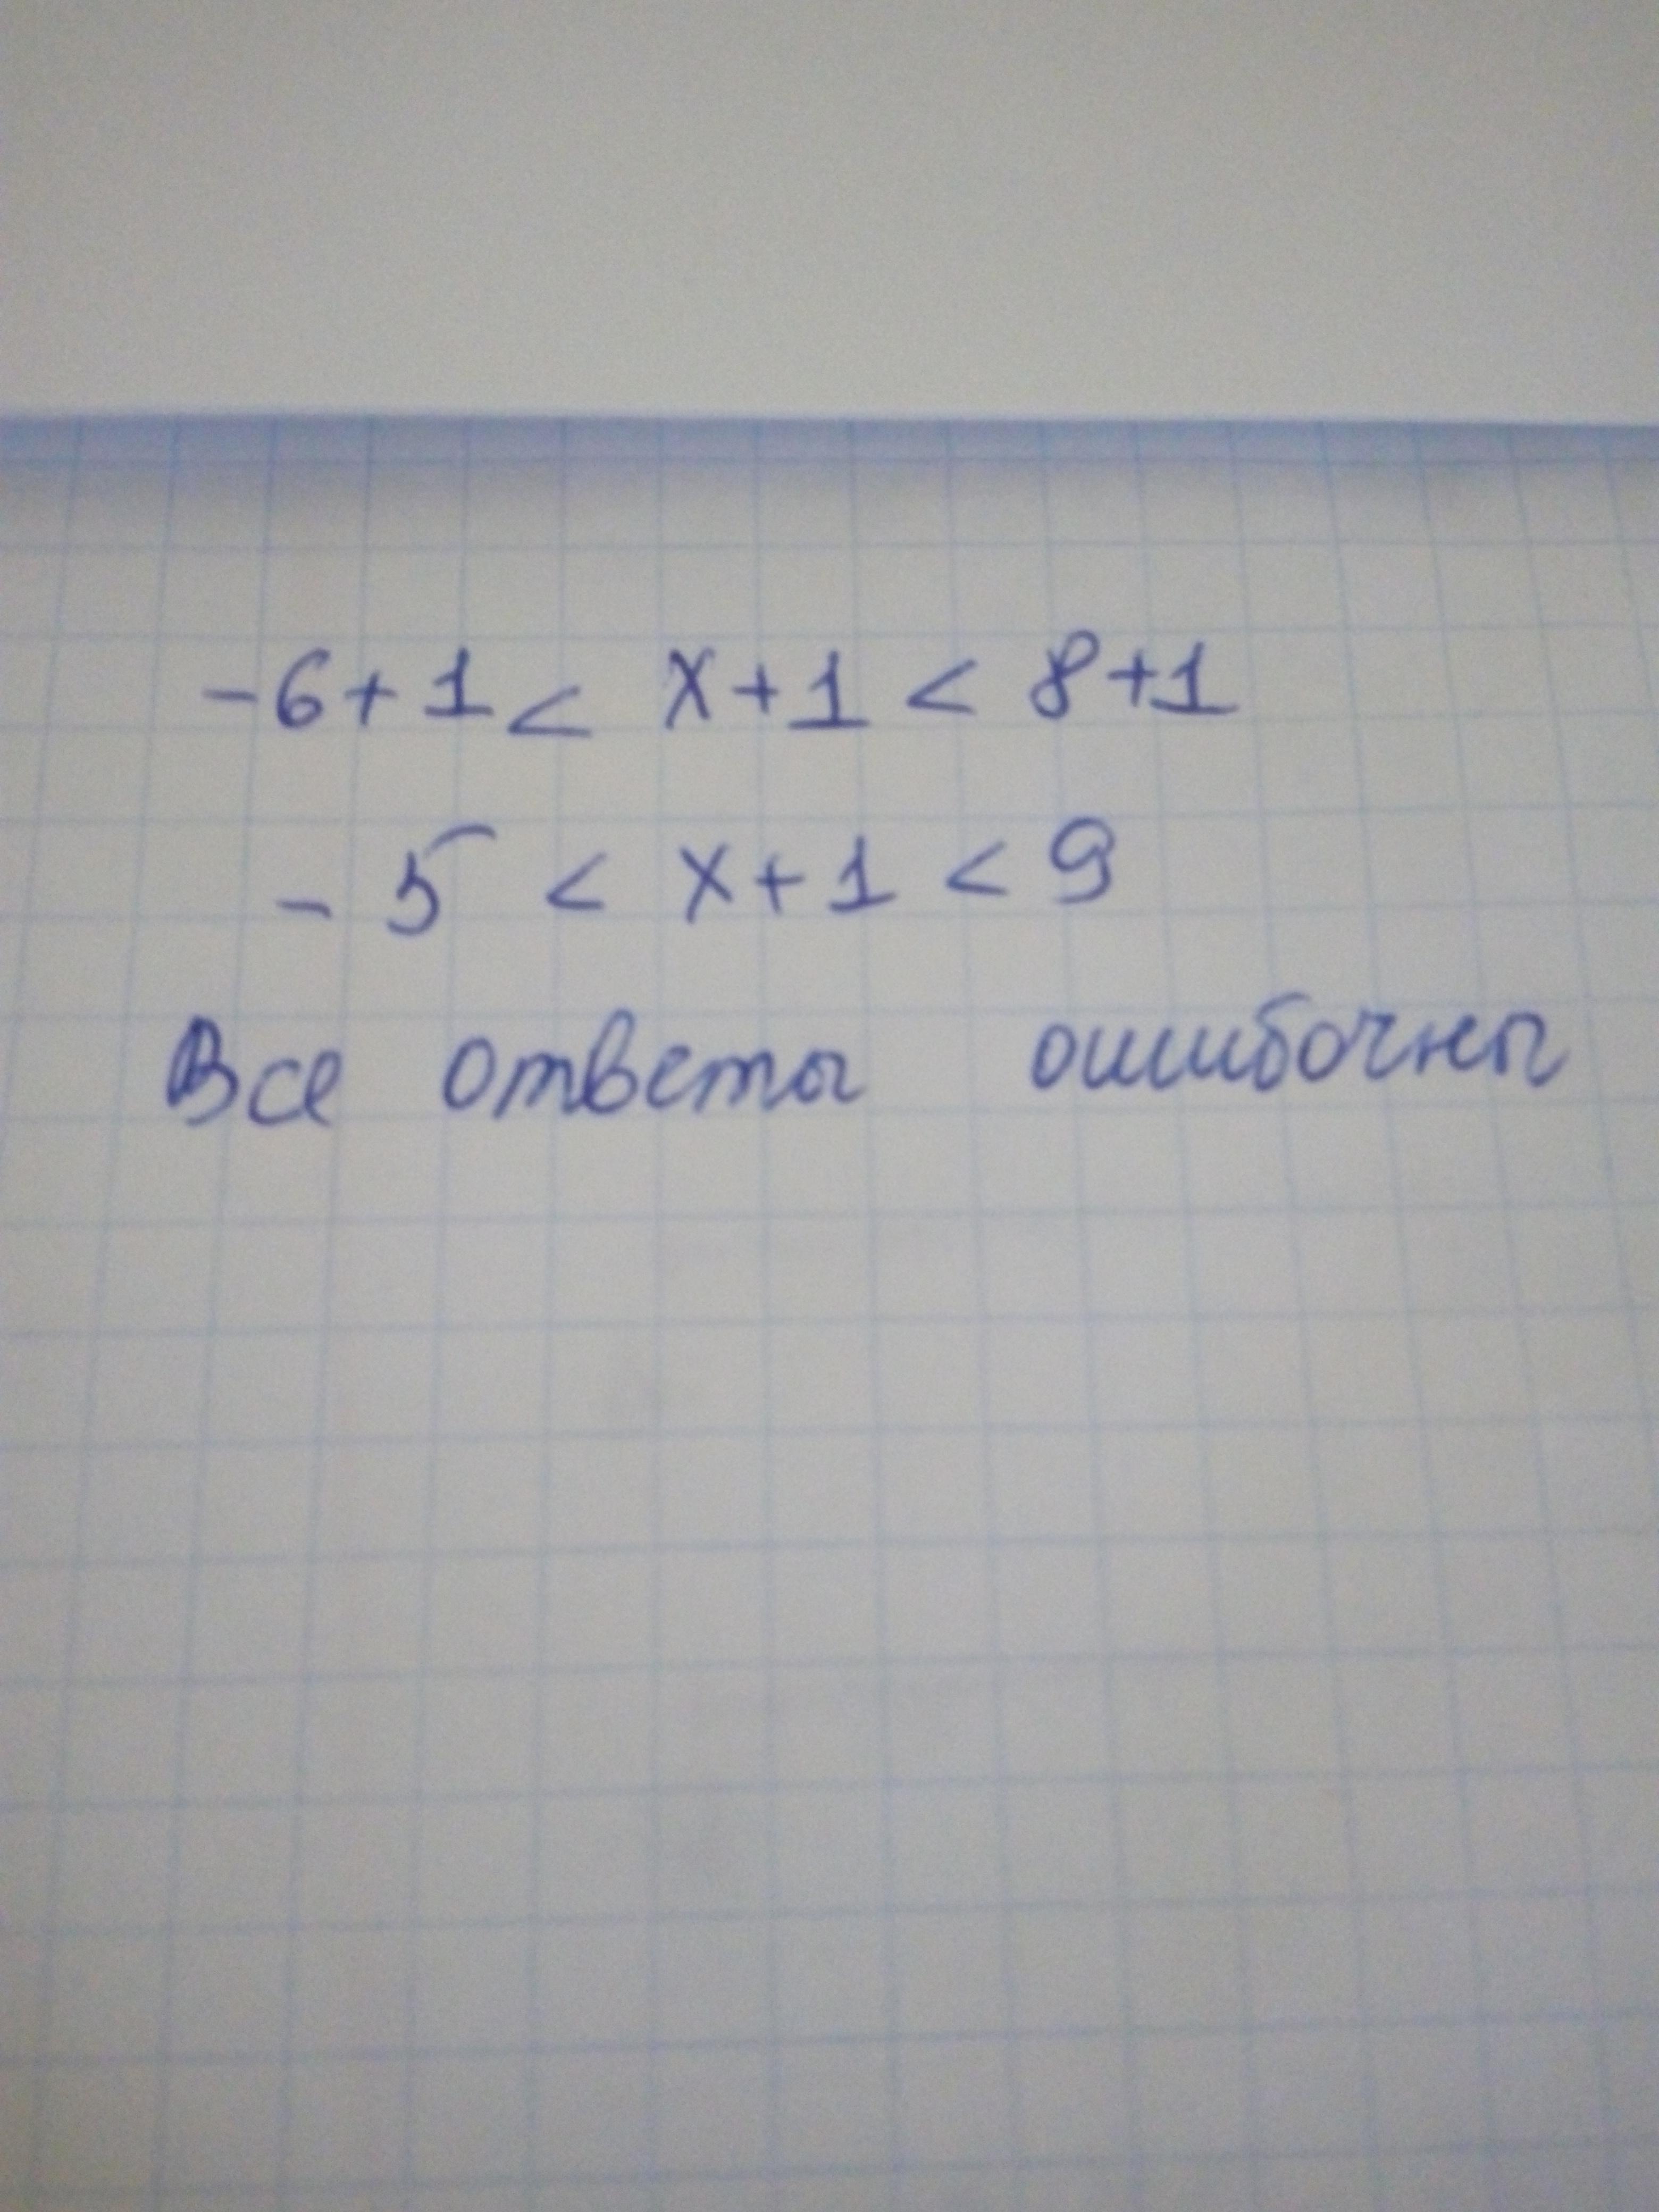 -6+1 < x+1 < 8+1
- 5 < x+1 < 9
Все ответы ошибочны